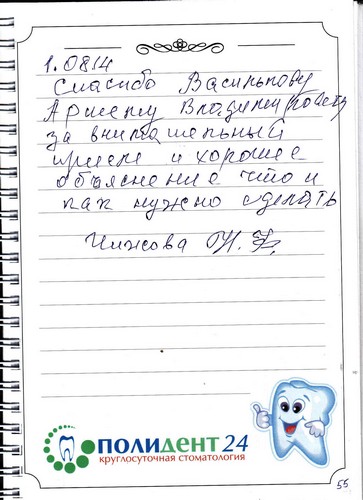 1.0814
Спасибо Васильпову
Артему Владимировичу
за внимательный
прием и хорошее
объяснение что и
как нужно сделать
Чижова Н. Ф.
ПОЛИДЕНТ 24
круглосуточная стоматология
55